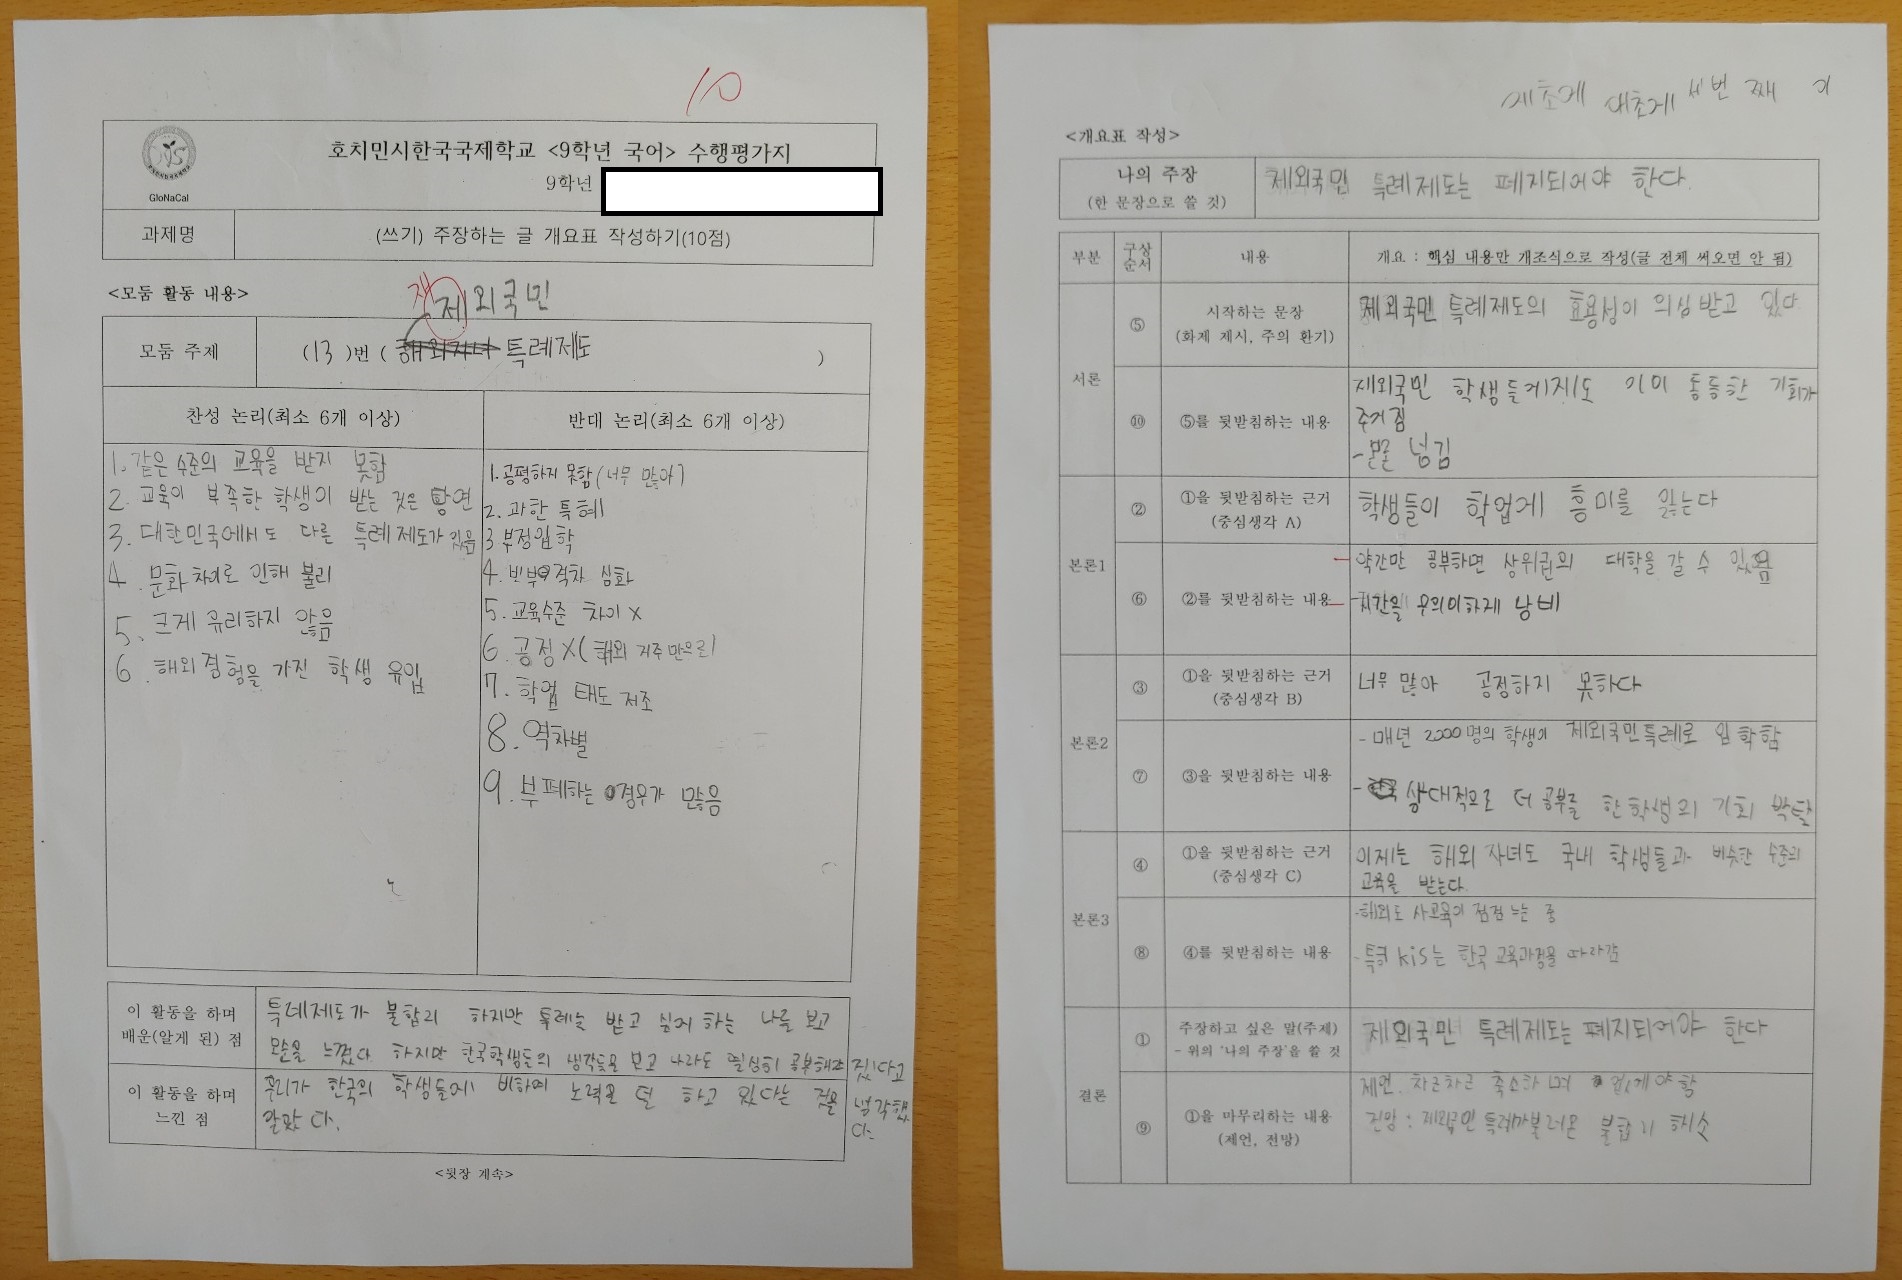 10
호치민시한국국제학교 <9학년 국어> 수행평가지
9학년
GloNaCal
과제명
(쓰기) 주장하는 글 개요표 작성하기(10점)
<모둠 활동 내용>
재
제외국민
모둠 주제
(13)번 (해외자녀 특례제도 )
찬성 논리(최소 6개 이상)
1. 같은 수준의 교육을 받지 못함
2. 교육이 부족한 학생이 받는 것은 당연
3. 대한민국에서도 다른 특례제도가 있음
4. 문화 차이로 인해 불리
5. 크게 유리하지 않음
6. 해외경험을 가진 학생 유입
반대 논리(최소 6개 이상)
1. 공평하지 못함 (너무 많아)
2. 과한 특혜
3 부정입학
4. 빈부격차 심화
5. 교육수준 차이 X
6. 공정 X (해외 거주만으로)
7. 학업 태도 저조
8. 역차별
9. 부패하는 경우가 많음
이 활동을 하며
배운(알게 된) 점
특례제도가 불합리 하지만 특례를 받고 싶어 하는 나를 보고
모순을 느꼈다. 하지만 한국학생들의 생각들을 보고 나라도 열심히 공부해야 겠다고
생각했
다.
이 활동을 하며
느낀 점
우리가 한국의 학생들에 비하여 노력을 덜 하고 있다는 것을
알았다.
<뒷장 계속>
세번 째
<개요표 작성>
나의 주장
(한 문장으로 쓸 것)
제외국민 특례제도는 폐지되어야 한다.
부분
구상
순서
내용
개요 : 핵심 내용만 개조식으로 작성(글 전체 써오면 안 됨)
서론
⑤
시작하는 문장
(화제 제시, 주의 환기)
제외국민 특례제도의 효용성이 의심받고 있다
⑩
⑤를 뒷받침하는 내용
재외국민 학생들에게도 이미 동등한 기회가
주어짐
-물론 넘김
본론1
②
①을 뒷받침하는 근거
(중심생각 A)
학생들이 학업에 흥미를 잃는다
⑥
②를 뒷받침하는 내용
- 약간만 공부하면 상위권의 대학을 갈 수 있음
- 시간을 무의미하게 낭비
본론2
③
①을 뒷받침하는 근거
(중심생각 B)
너무 많아 공정하지 못하다
⑦
③을 뒷받침하는 내용
- 매년 2000명의 학생이 제외국민특례로 입학함
- 상대적으로 더 공부를 한 학생의 기회 박탈
본론3
④
①을 뒷받침하는 근거
(중심생각 C)
이제는 해외 자녀도 국내 학생들과 비슷한 수준의
교육을 받는다.
⑧
④를 뒷받침하는 내용
-해외도 사교육이 점점 느는 중
-특히 kis는 한국 교육과정을 따라감
결론
①
주장하고 싶은 말(주제)
- 위의 '나의 주장'을 쓸 것
제외국민 특례제도는 폐지되어야 한다
⑨
①을 마무리하는 내용
(제언, 전망)
제언. 차근차근 축소하며 없애야 함
전망 : 제외국민 특례가 불러온 불합리 해소